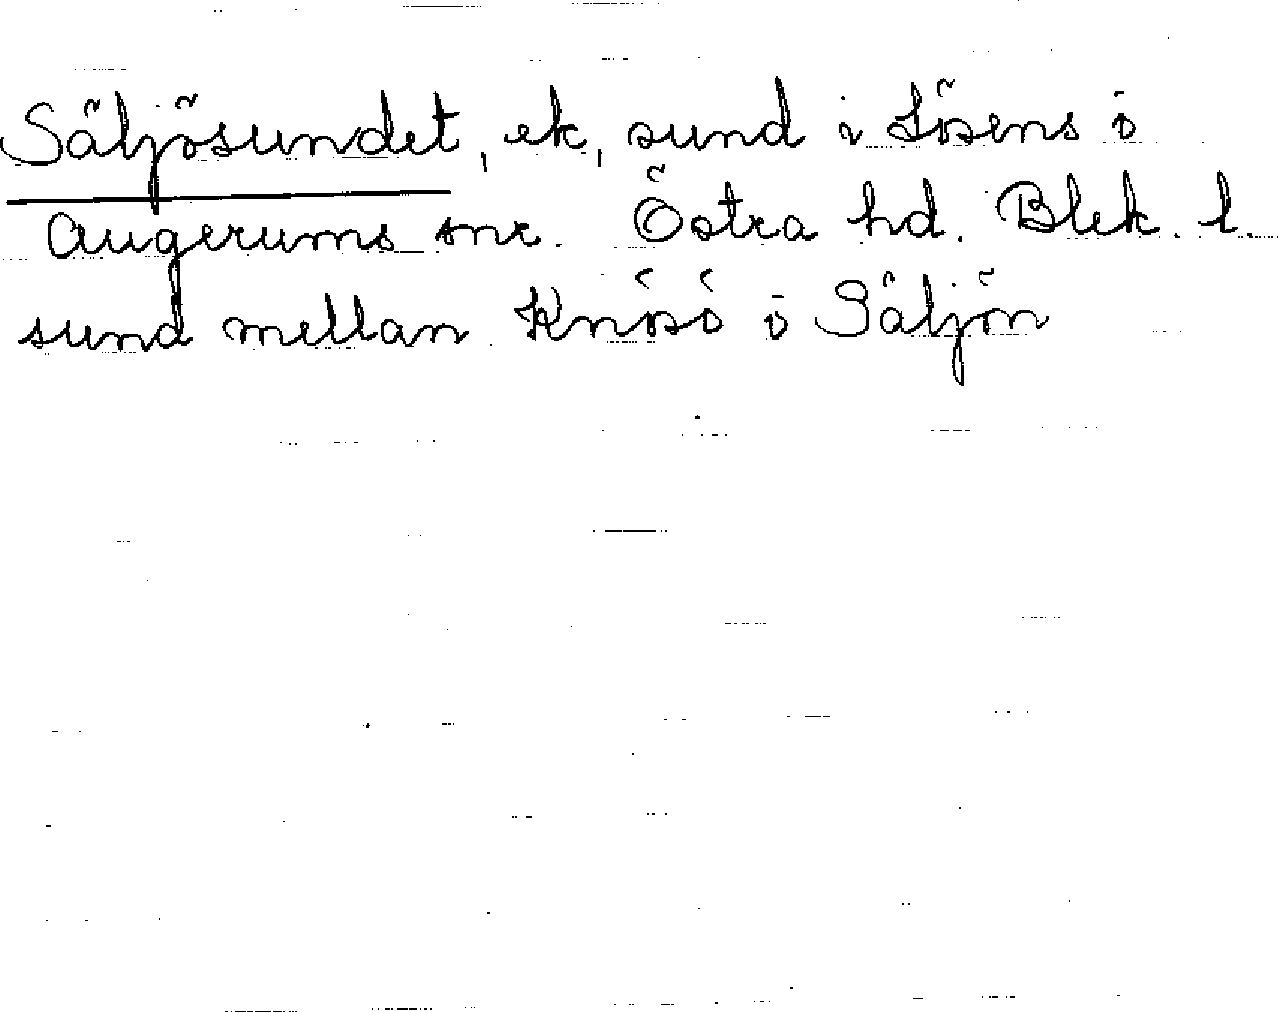 Säljösundet, ek, sund i Lösens o
Augerums snr. Östra hd. Blek. l.
sund mellan Knösö o Säljön